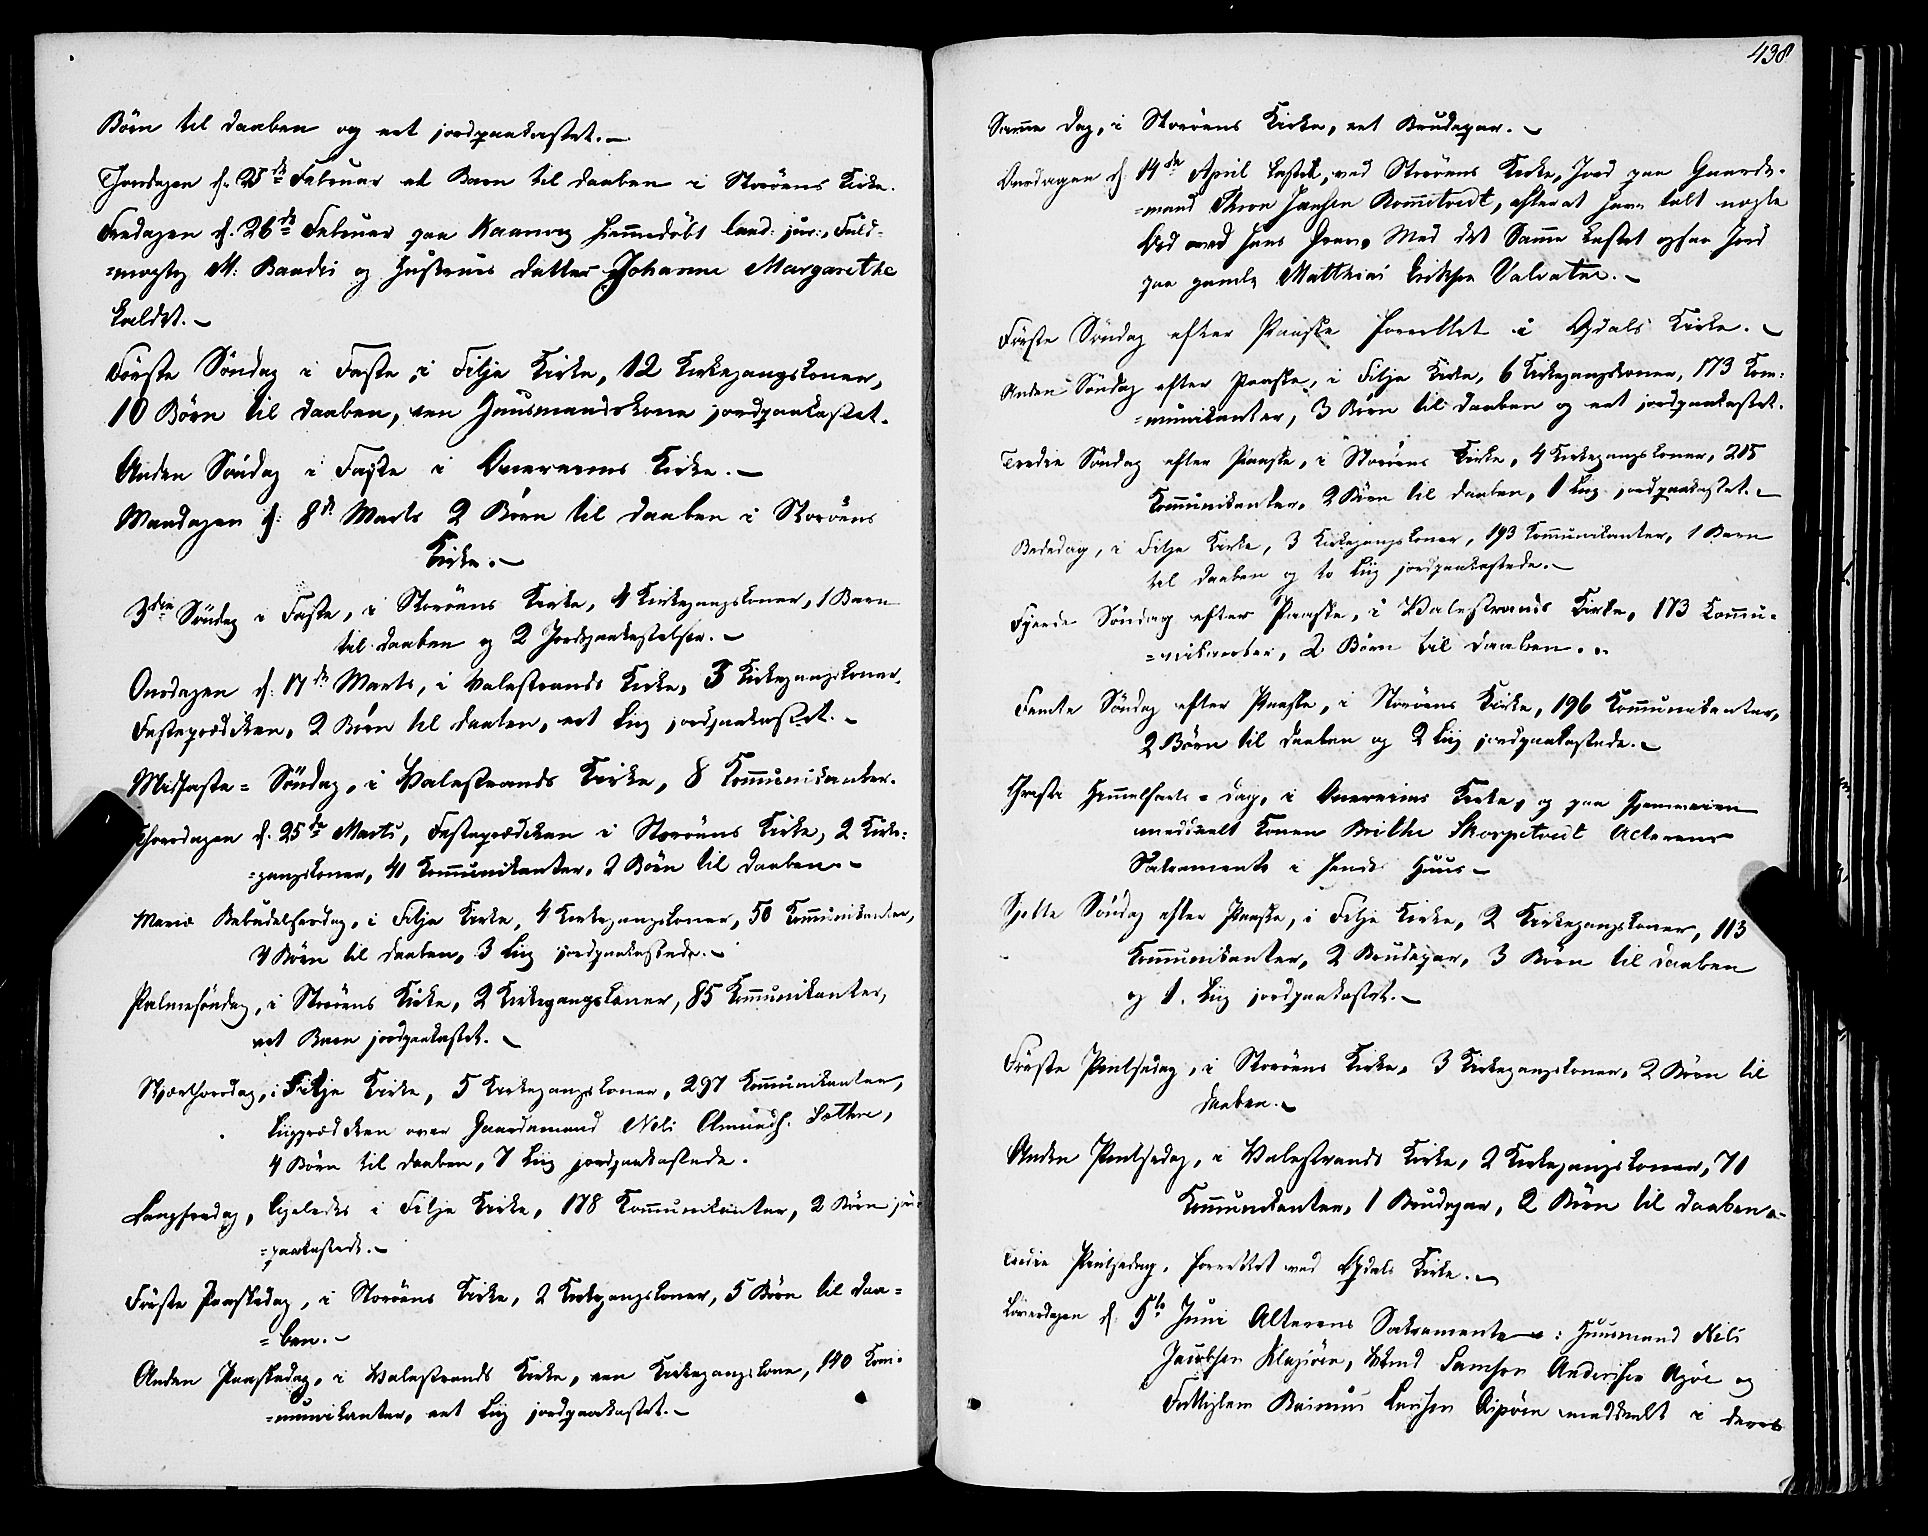 Börn til Daaben og eet jordpaakastet. –
Thorsdagen d. 25de Februar et Barn til Daaben i Storöens Kirke.
Fredagen d. 26de Februar paa Naarvig hjemmedöbt Cand: jur:, Fuld-
=mægtig M: Bandes og Hustrues Datter Johanne Margarethe
kaldet. –
Förste Söndag i Faste, i Fitje Kirke, 12 Kirkegangskoner,
10 Börn til Daaben, een Huusmandskone jordpaakastet.
Anden Söndag i Faste i Övereims Kirke. –
Mandagen d: 8de Marts 2 Börn til Daaben i Storöens
Kirke. –
3die Söndag i Faste, i Storöens Kirke, 4 Kirkegangskoner, 1 Barn
til Daaben og 2 Jordpaakastelser. –
Onsdagen d: 17de Marts, i Valestrands Kirke, 3 Kirkegangskoner,
Fasteprædiken, 2 Börn til Daaben, eet Liig jordpaakastet. –
Midfaste = Söndag, i Valestrands Kirke, 8 Kommunikanter.
Thorsdagen d. 25de Marts, Fasteprædiken i Storöens Kirke, 2 Kirke-
=gangskoner, 41 Kommunikanter, 2 Börn til Daaben. –
Mariæ Bebudelsesdag, i Fitje Kirke, 4 Kirkegangskoner, 50 Kommunikanter,
4 Börn til Daaben, 3 Liig jordpaakastede. –
Palmesöndag, i Storöens Kirke, 2 Kirkegangskoner, 85 Kommunikanter,
eet Barn jordpaakastet. –
Skjærthorsdag, i Fitje Kirke, 5 Kirkegangskoner, 297 Kommunikanter,
Liigprædiken over Gaardmand Nels
4 Börn til Daaben, 7 Liig jordpaakastede.
Langfredag, ligeledes i Fitje Kirke, 178 Kommunikanter, 2 Börn
=paakastede. –
Förste Paaskedag, i Storöens Kirke, 2 Kirkegangskoner, 5 Börn til Daa=
=ben. –
Anden Paaskedag, i Valestrands Kirke, een Kirkegangskone, 140 Kom-
=munikanter, eet Liig jordpaakastet. –
438
Samme Dag, i Storöens Kirke, eet Brudepar. –
Onsdagen d. 14de April kastet, ved Storöens Kirke, Jord paa Gaard-
=mand Thron Jansen Rommetvedt, efterat have talt nogle
Ord ved hans Grav. Med det Samme kastet ogsaa Jord
paa gamle Matthias Eriksen Valvatne. –
Förste Söndag efter Paaske forrettet i Ögdals Kirke. –
Anden Söndag efter Paaske, i Fitje Kirke, 6 Kirkegangskoner, 173 Kom-
=munikanter, 3 Börn til Daaben og eet jordpaakastet.
Tredie Söndag efter Paaske, i Storöens Kirke, 4 Kirkegangskoner, 205
Kommunikanter, 2 Börn til Daaben, 1 Liig jordpaakastet. –
Bededag, i Fitje Kirke, 3 Kirkegangskoner, 193 Kommunikanter, 1 Barn
til Daaben og to Liig jordpaakastede. –
Fjerde Söndag efter Paaske, i Valestrands Kirke, 173 Kommu-
=nikanter, 2 Börn til Daaben. –
Femte Söndag efter Paaske, i Storöens Kirke, 196 Kommunikanter,
2 Börn til Daaben og 2 Liig jordpaakastede. –
Christi Himmelfarts = Dag, i Övereims Kirke, og paa Hjemveien
meddeelt Konen Brithe Skorpetvedt Alterens
Sakramente i hendes Huus –
Sjette Söndag efter Paaske, i Fitje Kirke, 2 Kirkegangskoner, 113
Kommunikanter, 2 Brudepar, 3 Börn til Daaben
og 1. Liig jordpaakastet. –
Förste Pintsedag, i Storöens Kirke, 3 Kirkegangskoner, 2 Börn til
Daaben. –
Anden Pintsedag, i Valestrands Kirke, 2 Kirkegangskoner, 71
Kommunikanter, 1 Brudepar, 2 Börn til Daaben. –
Tredie Pintsedag, forrettet ved Ögdals Kirke. –
Löverdagen d. 5te Juni Alterens Sakramente : Huusmand Nels
Jacobsen Samson Andersen og
Fattiglem Rasmus Larsen meddeelt i deres